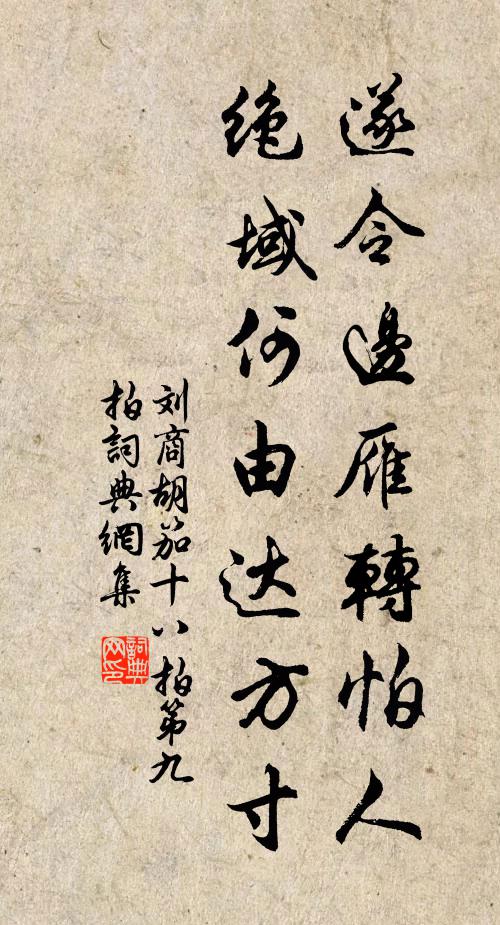 遂令邊雁轉怕人
绝域何由达方寸
刘商胡笳十八拍第九
拍詞典網集
詞典
网印